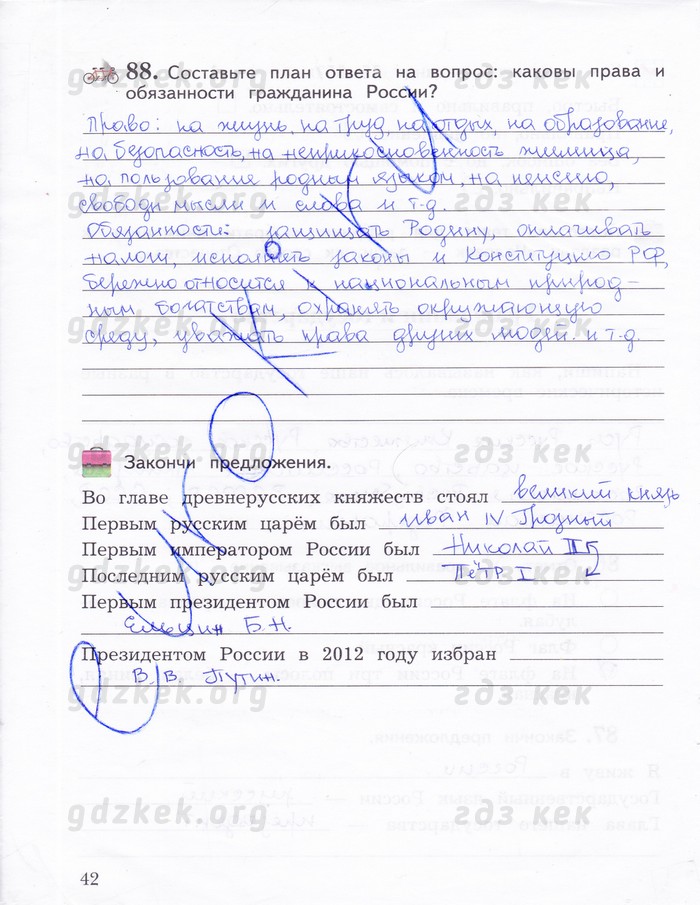 88. Составьте план ответа на вопрос: каковы права и
обязанности гражданина России?
Право: на жизнь, на труд, на отдых, на образование,
на безопасность, на неприкосновенность жилища,
на пользование родным языком, на пенсию,
свободы мысли и слова и т.д.
Обязанности: защищать Родину, оплачивать
налоги, исполнять законы и Конституцию РФ,
бережно относится к национальным природ-
ным богатствам, охранять окружающую
среду, уважать права других людей и т.д.
Закончи предложения.
Во главе древнерусских княжеств стоял великий князь
Первым русским царём был Иван IV Грозный
Первым императором России был Николай II
Последним русским царём был Пётр I
Первым президентом России был
Ельцин Б.Н.
Президентом России в 2012 году избран
В. В. Путин.
gdzkek.org гдз кек
42